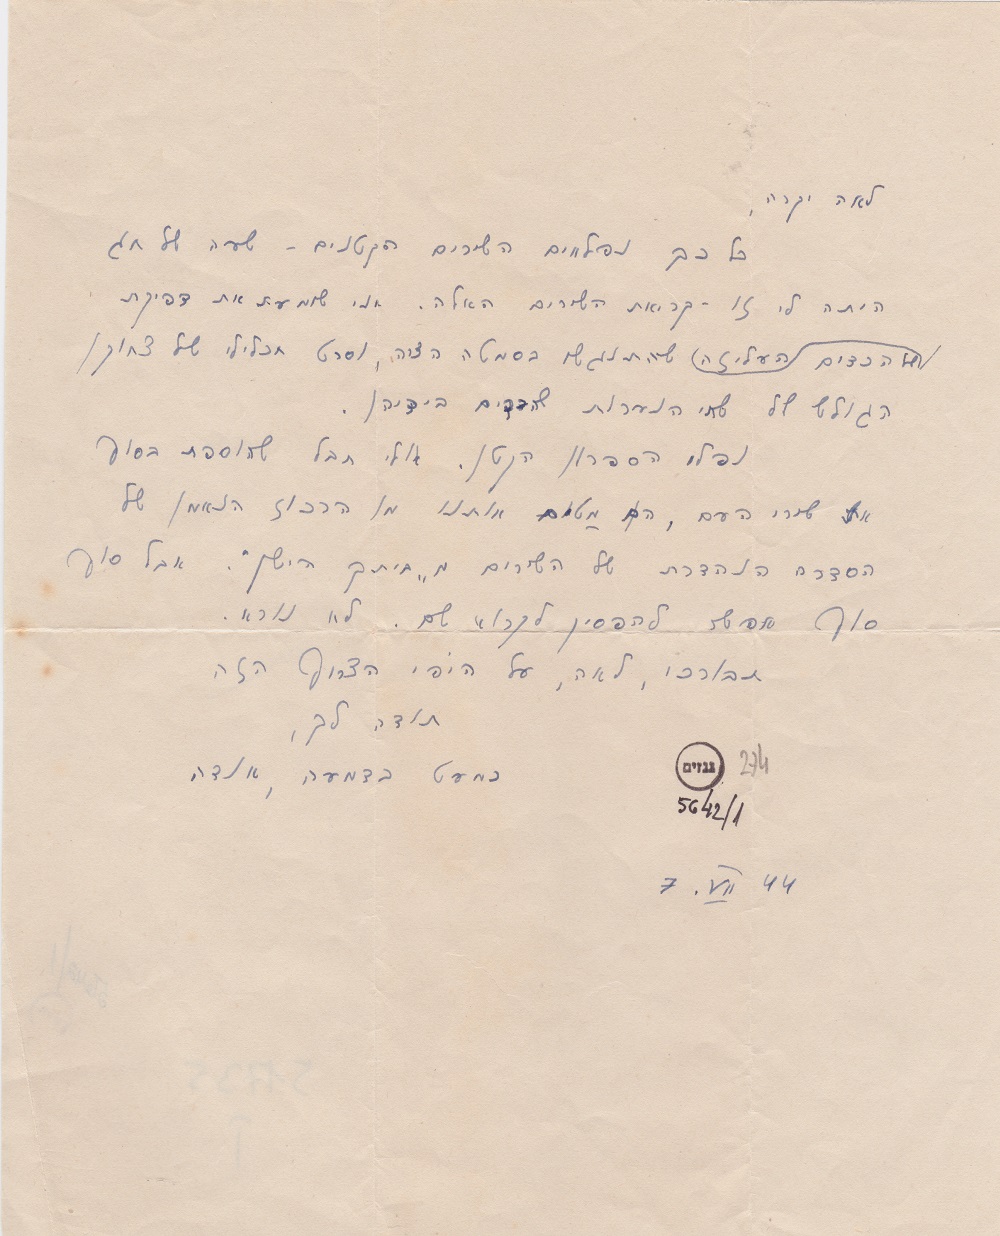 לאה יקרה,
כל כך נפלאים השירים הקטנים – שעה של חג
היתה לי זו – קריאת השירים האלה. אני שומעת את דפיקת
הכדים (העליזה) שהתנגשו בסמטה הצרה, וסרט תכלילי של צחוקן
הגולש של שתי הנערות שהכדים בידיהן.
נפלא הספרון הקטן. אולי חבל שהוספת בסוף
את שירי העם, הם מטים אותנו מן הרכוז הנאמן של
הסדרה הנהדרת של השירים מ„ביתק הישן". אבל סוף
סוף אפשר להפסיק לקרוא שם. לא נורא.
תבורכי, לאה, על היפי הצרוף הזה
תודה לך,
כמעט בדמעה, אנדה
גנזים 274
5642/1
7. VII 44